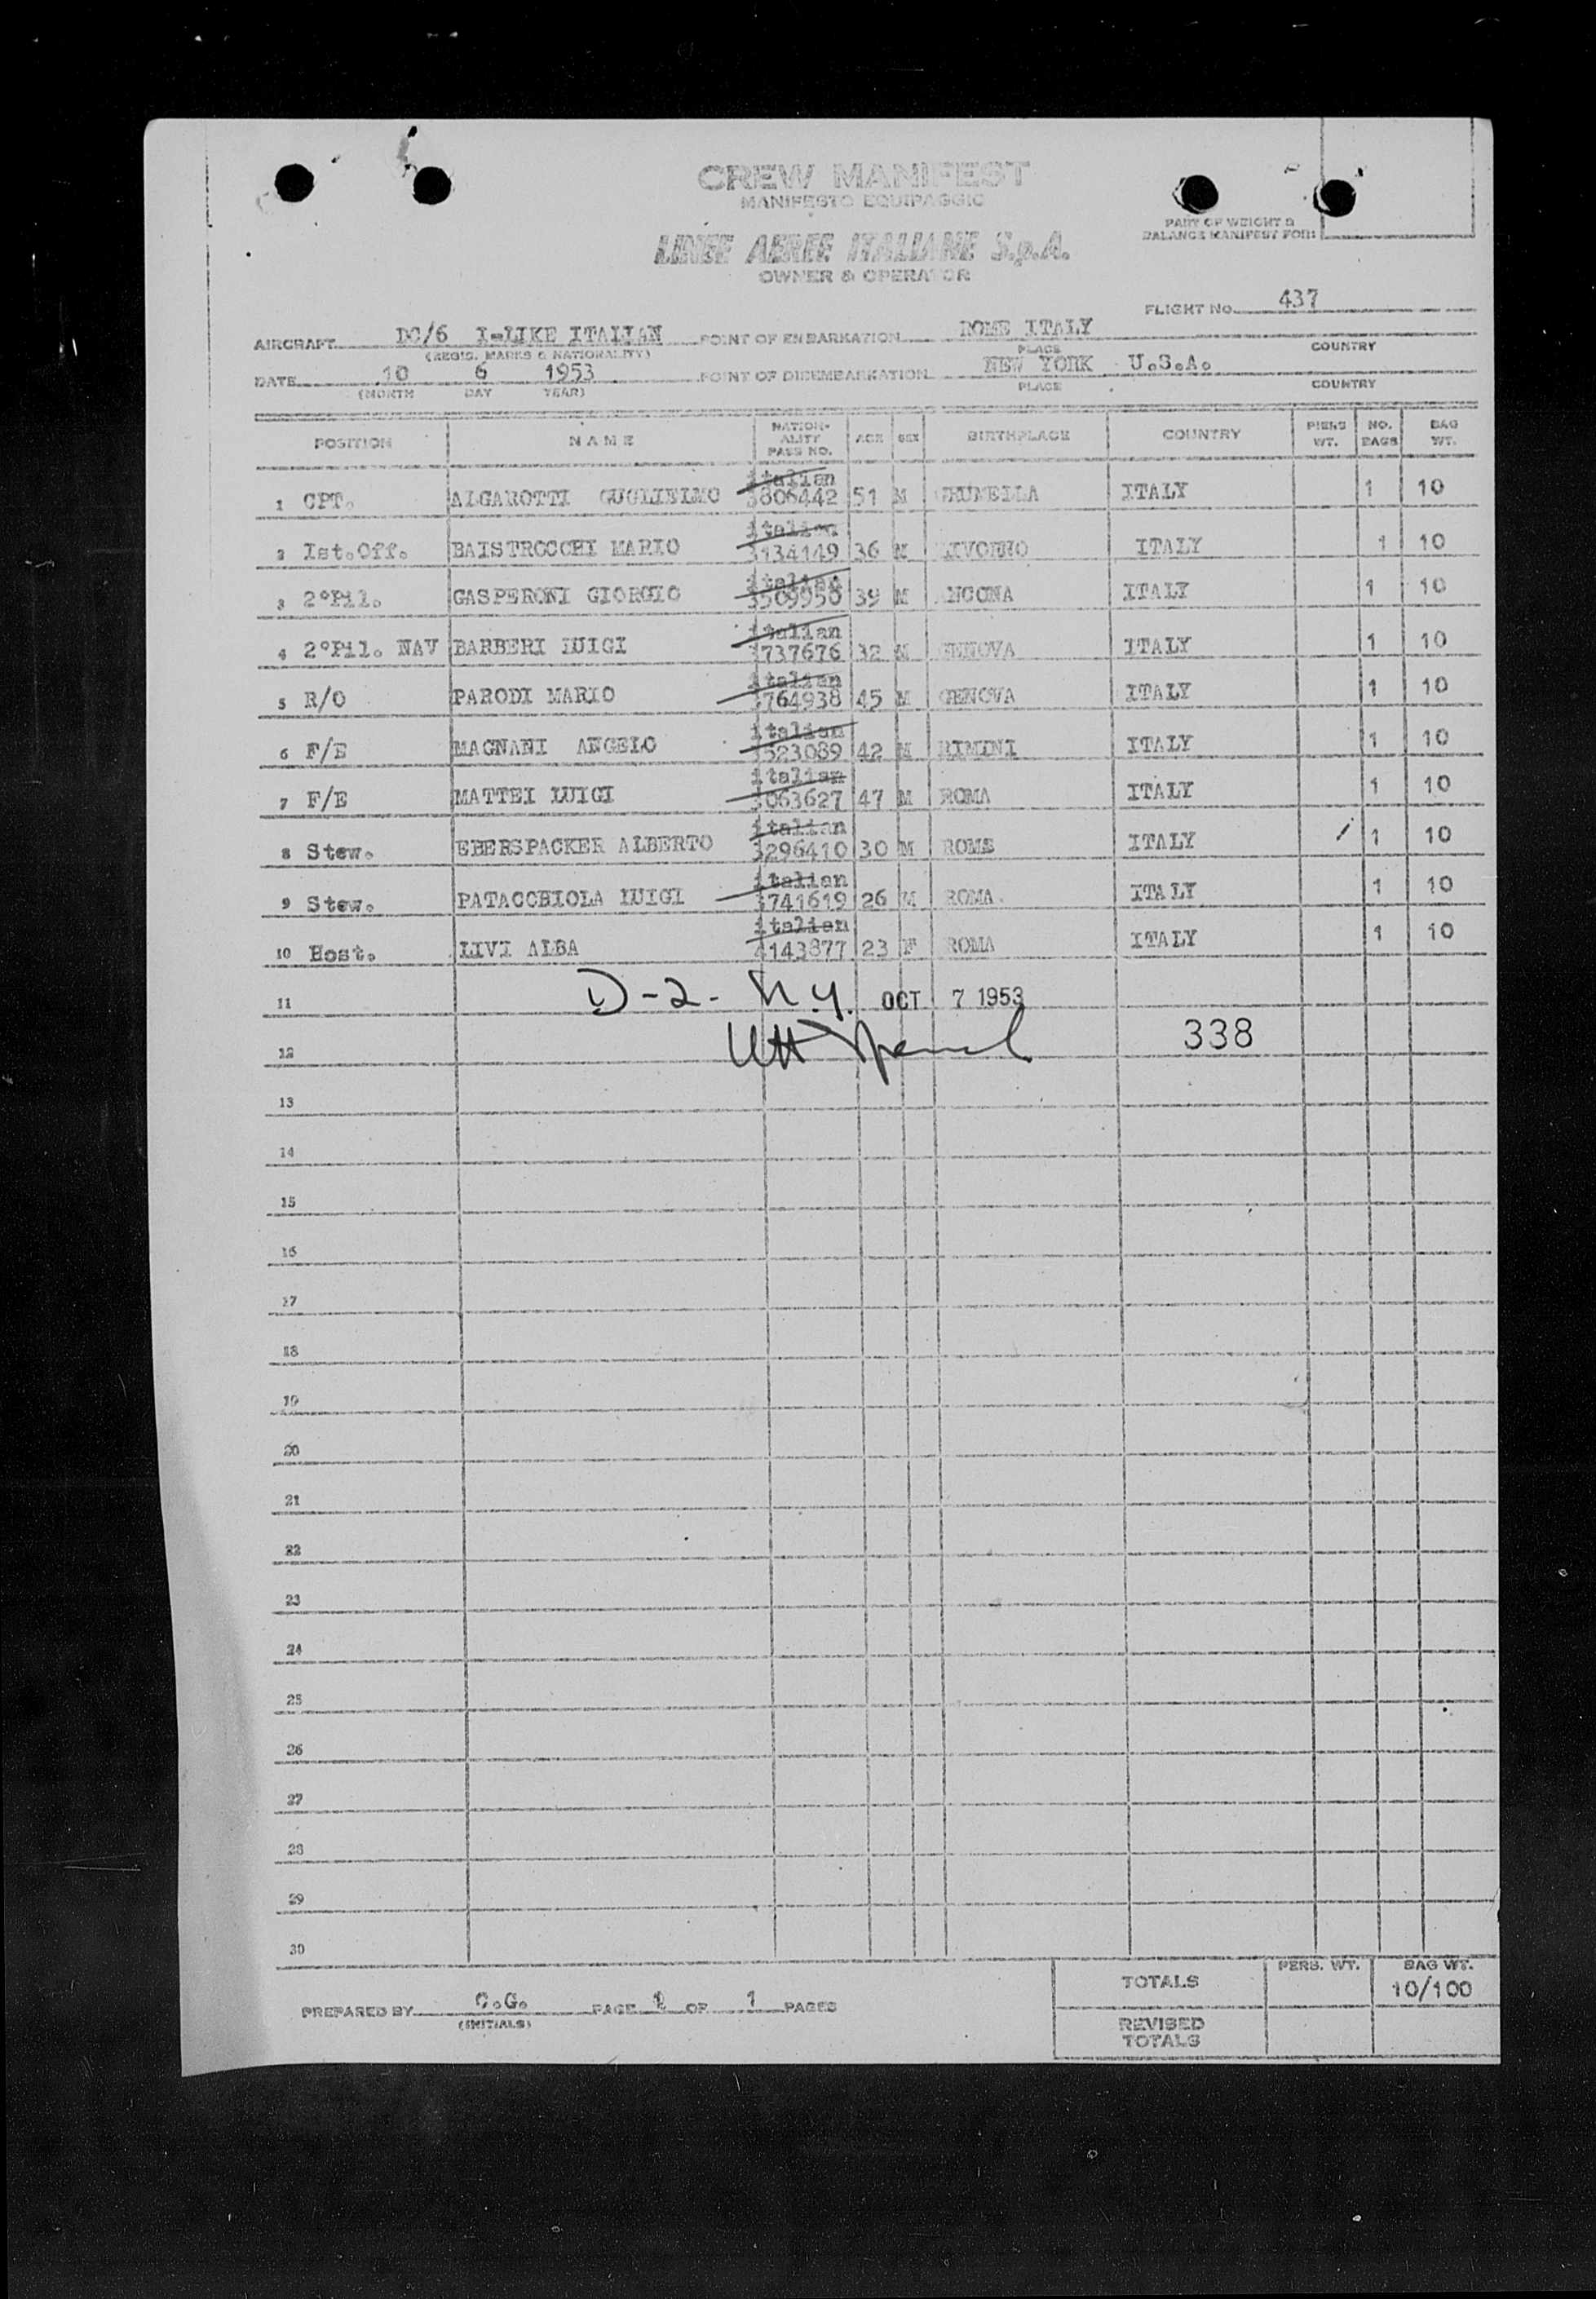 CREW MANIFEST
MANIFESTO EQUIPAGGIO
PART OF WEIGHT &
BALANCE MANIFEST FOR:
LINEE AEREE ITALIANE S.p.A.
OWNER & OPERATOR
FLIGHT No. 437
AIRCRAFT DC/6 I-LIKE ITALIAN POINT OF EMBARKATION ROME ITALY
(REGIS. MARKS & NATIONALITY) PLACE COUNTRY
DATE 10 6 1953 POINT OF DISEMBARKATION NEW YORK U.S.A.
(MONTH DAY YEAR) PLACE COUNTRY
POSITION NAME NATION-ALITY PASS NO. AGE SEX BIRTHPLACE COUNTRY PERS WT. NO. BAGS BAG WT.
1 CPT. ALGAROTTI GUGLIELMO italian 3806442 51 M ITALY 1 10
2 Ist.Off. BAISTROCCHI MARIO italian 3134149 36 M LIVORNO ITALY 1 10
3 2°Pil. GASPERONI GIORGIO italian 3509950 39 M ANCONA ITALY 1 10
4 2°Pil. NAV BARBERI LUIGI italian 3737676 32 M GENOVA ITALY 1 10
5 R/O PARODI MARIO italian 3764938 45 M GENOVA ITALY 1 10
6 F/E MAGNANI ANGELO italian 3523089 42 M RIMINI ITALY 1 10
7 F/E MATTEI LUIGI italian 3063627 47 M ROMA ITALY 1 10
8 Stew. EBERSPACKER ALBERTO italian 3296410 30 M ROME ITALY 1 10
9 Stew. PATACCHIOLA LUIGI italian 3741619 26 M ROMA. ITALY 1 10
10 Host. LIVI ALBA italian 4143877 23 F ROMA ITALY 1 10
11 D-2- N.Y. OCT 7 1953
12 338
13
14
15
16
17
18
19
20
21
22
23
24
25
26
27
28
29
30
PERS. WT. BAG WT.
TOTALS 10/100
PREPARED BY C.G. PAGE 1 OF 1 PAGES
(INITIALS)
REVISED
TOTALS